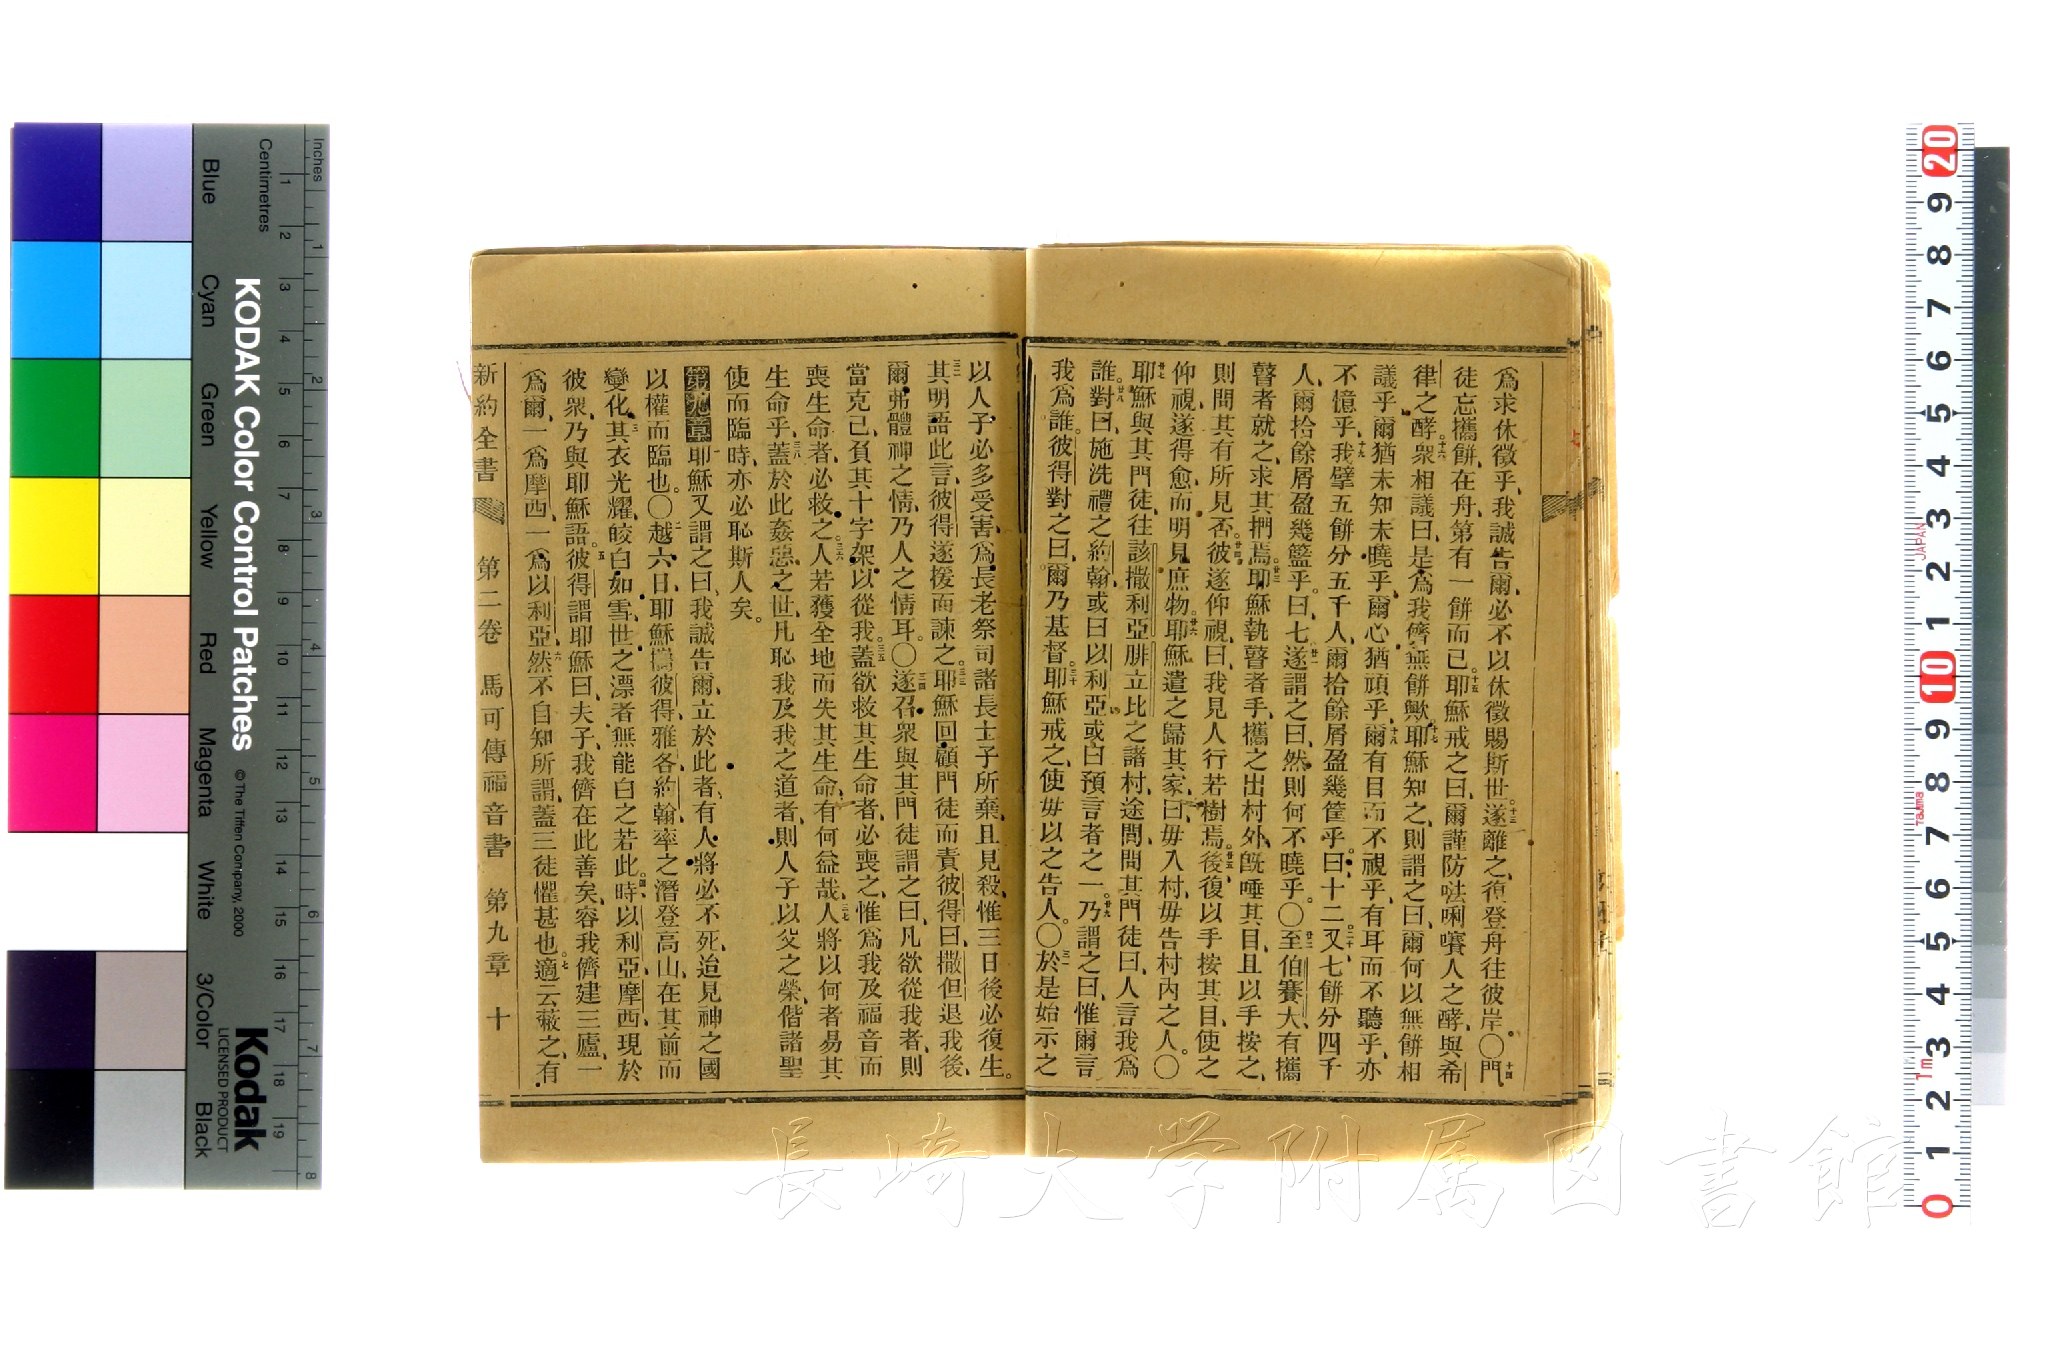 爲求休徵乎、我誠告爾、必不以休徵賜斯世、十三遂離之、復登舟往彼岸。〇十四門
徒忘攜餅、在舟、第有一餅而已。十五耶穌戒之曰、爾謹防𠵽唎賽人之酵、與希
律之酵、十六衆相議曰、是爲我儕無餅歟、十七耶穌知之、則謂之曰、爾何以無餅相
議乎、爾猶未知未曉乎、爾心猶頑乎、十八爾有目而不視乎、有耳而不聽乎、亦
不憶乎、十九我擘五餅分五千人、爾拾餘屑盈幾筐乎、曰十二、二十又七餅分四千
人、爾拾餘屑盈幾籃乎。曰、七、廿一遂謂之曰、然則何不曉乎。〇廿二至伯賽大、有攜
瞽者就之、求其捫焉。廿三耶穌執瞽者手、攜之出村外、旣唾其目、且以手按之、
則問其有所見否。廿四彼遂仰視、曰、我見人行若樹焉。廿五後復以手按其目、使之
仰視、遂得愈、而明見庶物。廿六耶穌遣之歸其家、曰、毋入村、毋告村內之人。〇
廿七耶穌與其門徒、往該撒利亞腓立比之諸村、途間問其門徒曰、人言我爲
誰。廿八對曰、施洗禮之約翰、或曰以利亞、或曰預言者之一。廿九乃謂之曰、惟爾言
我爲誰。彼得對之曰、爾乃基督。三十耶穌戒之、使毋以之告人。〇三一於是始示之
以人子必多受害、爲長老祭司諸長士子所棄、且見殺、惟三日後必復生。
三二其明語此言、彼得遂援而諫之。三三耶穌回顧門徒而責彼得曰、撒但退我後、
爾弗體神之情、乃人之情耳。〇三四遂召衆與其門徒謂之曰、凡欲從我者、則
當克己、負其十字架以從我。三五蓋欲救其生命者、必喪之、惟爲我及福音而
喪生命者、必救之。三六人若獲全地而失其生命、有何益哉、三七人將以何者易其
生命乎、三八蓋於此姦惡之世、凡恥我及我之道者、則人子以父之榮、偕諸聖
使而臨時、亦必恥斯人矣。
第九章 耶穌又謂之曰、我誠告爾、立於此者、有人將必不死、迨見神之國
以權而臨也。〇二越六日、耶穌攜彼得、雅各、約翰、率之潛登高山、在其前而
變化、三其衣光耀、皎白如雪、世之漂者、無能白之若此、四時以利亞摩西、現於
彼衆、乃與耶穌語。五彼得謂耶穌曰、夫子、我儕在此善矣、容我儕建三廬、一
爲爾、一爲摩西、一爲以利亞、六然不自知所謂、蓋三徒懼甚也。七適云蔽之、有
新約全書 第二卷 馬可傳福音書 第九章 十
KODAK Color Control Patches
© The Tiffen Company, 2000
Kodak
LICENSED PRODUCT
Inches
Centimetres
Blue Cyan Green Yellow Red Magenta White 3/Color Black
1 2 3 4 5 6 7 8 9 10 11 12 13 14 15 16 17 18 19
1 2 3 4 5 6 7 8
20 9 8 7 6 5 4 3 2 1 10 9 8 7 6 5 4 3 2 1 0
JAPAN
Tajima
7m
長崎大学附属図書館